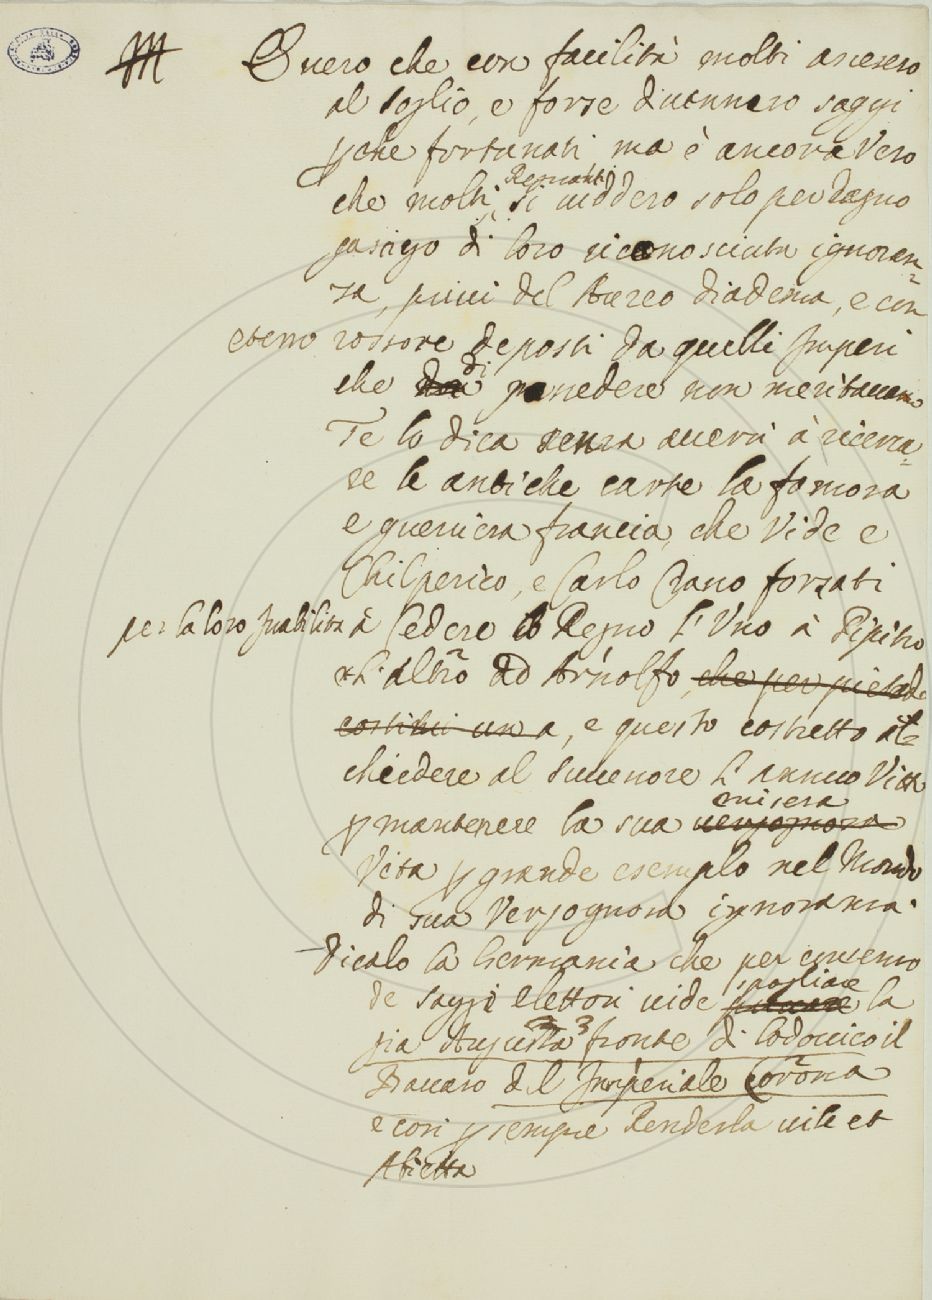 È uero che con facilità molti ascesero
al soglio, e forse diuennero saggi
p che fortunati ma è ancora Vero
che molti Regnanti si uiddero solo per degno
gastigo di loro riconosciuta ignoran-
za, priui del Aureo diadema, e con
eterno rossore deposti da quelli Imperi
che di possedere non meritauano
Te lo dica senza auerti à ricerca-
re le antiche carte la famosa
e guerriera francia, che Vide e
Chilperico, e Carlo Crasso forzati
per la loro Inabilità à Cedere il Regno l'Uno à Pipino
e l'altro ad Arnolfo che per pietade
costitui una, e questo costretto à
chiedere al Successore l'annuo Vitto
p mantenere la sua uergognosa misera
Vita p grande esempio nel Mondo
di sua Vergognosa ignoranza.
Dicalo la Germania che per consenso
de saggi elettori uide spogliare la
gia Augusta fronte di Lodouico il
Bauaro del Imperiale Corona
e cosi p sempre Renderla uile et
Abietta